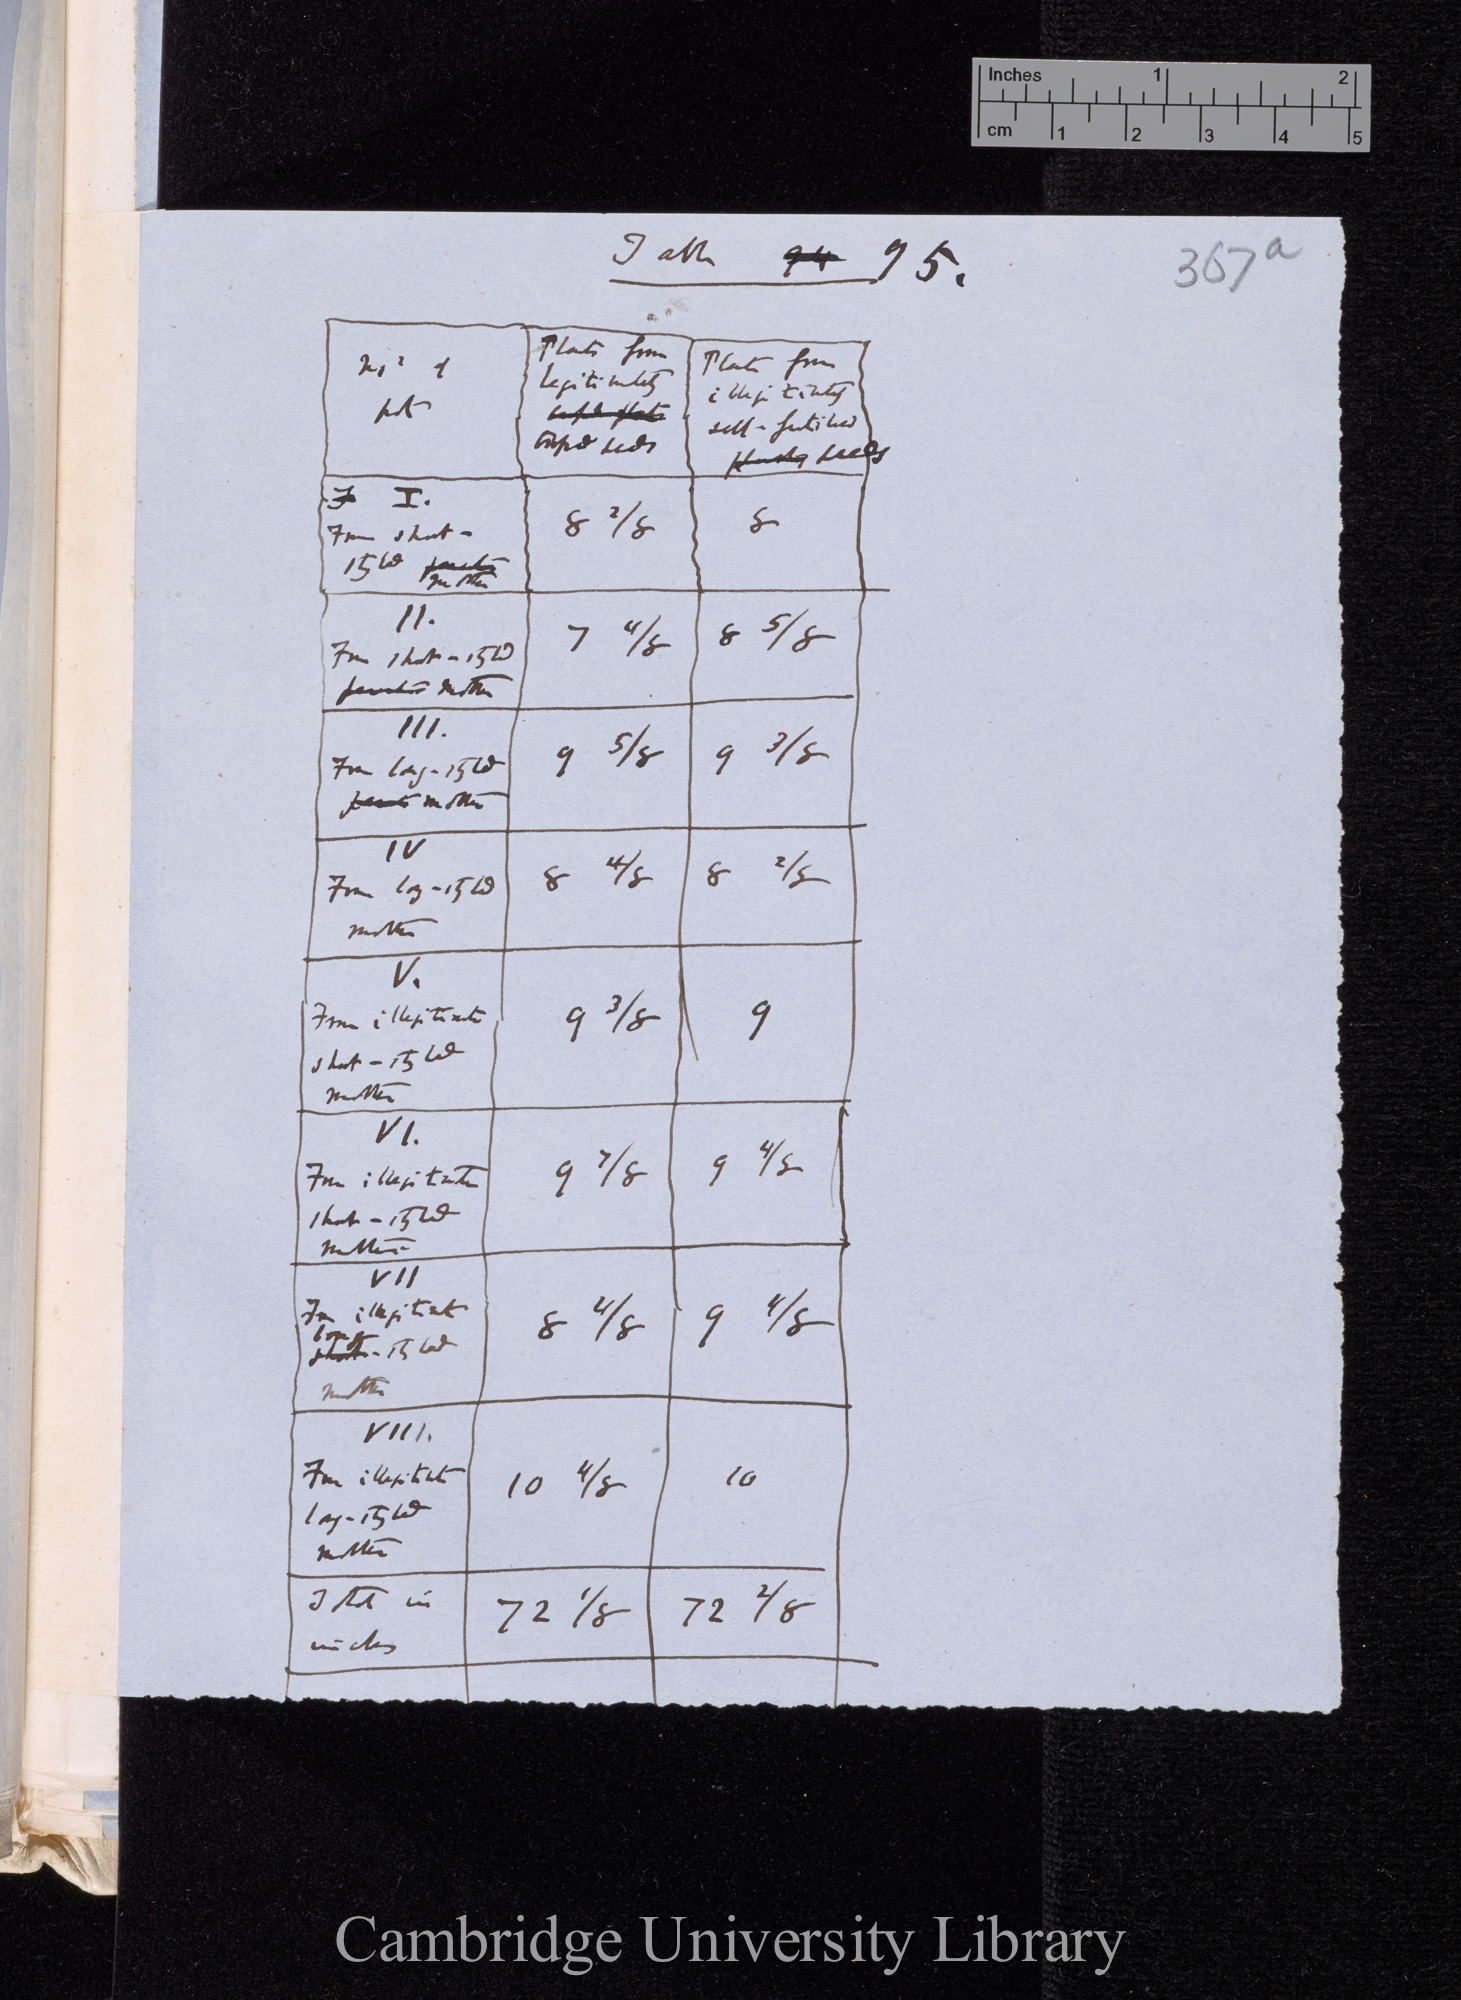 Inches 1 2
cm 1 2 3 4 5
Table 94 95.
367a
No. of
pot
Plants from
legitimately
crossed seeds
Plants from
illegitimately
self-fertilised
plants seeds
I.
From short-
styled parents
mother
8 2/8
8
II.
From short-styled
parents mother
7 4/8
8 5/8
III.
From long-styled
parents mother
9 5/8
9 3/8
IV
From long-styled
mother
8 4/8
8 2/8
V.
From illegitimate
short-styled
mother
9 3/8
9
VI.
From illegitimate
short-styled
mother
9 7/8
9 4/8
VII
From illegitimate
long
short-styled
mother
8 4/8
9 4/8
VIII.
From illegitimate
long-styled
mother
10 4/8
10
Total in
inches
72 1/8
72 2/8
Cambridge University Library